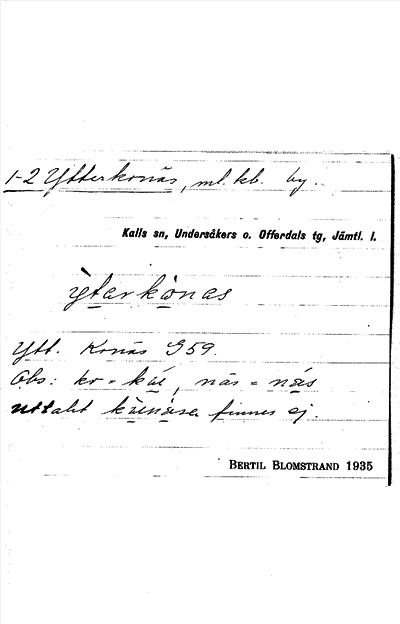 1-2 Ytterkonäs, ml. kb. by.
Kalls sn, Undersåkers o. Offerdals tg, Jämtl. l.
Ytt. Konäs 959.
Obs: ko =, näs =
uttalet finnes ej.
BERTIL BLOMSTRAND 1935